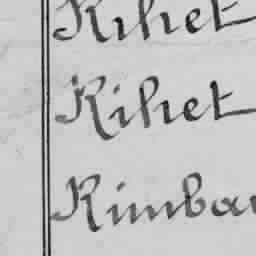 Kihet
Kihet
Rimbau